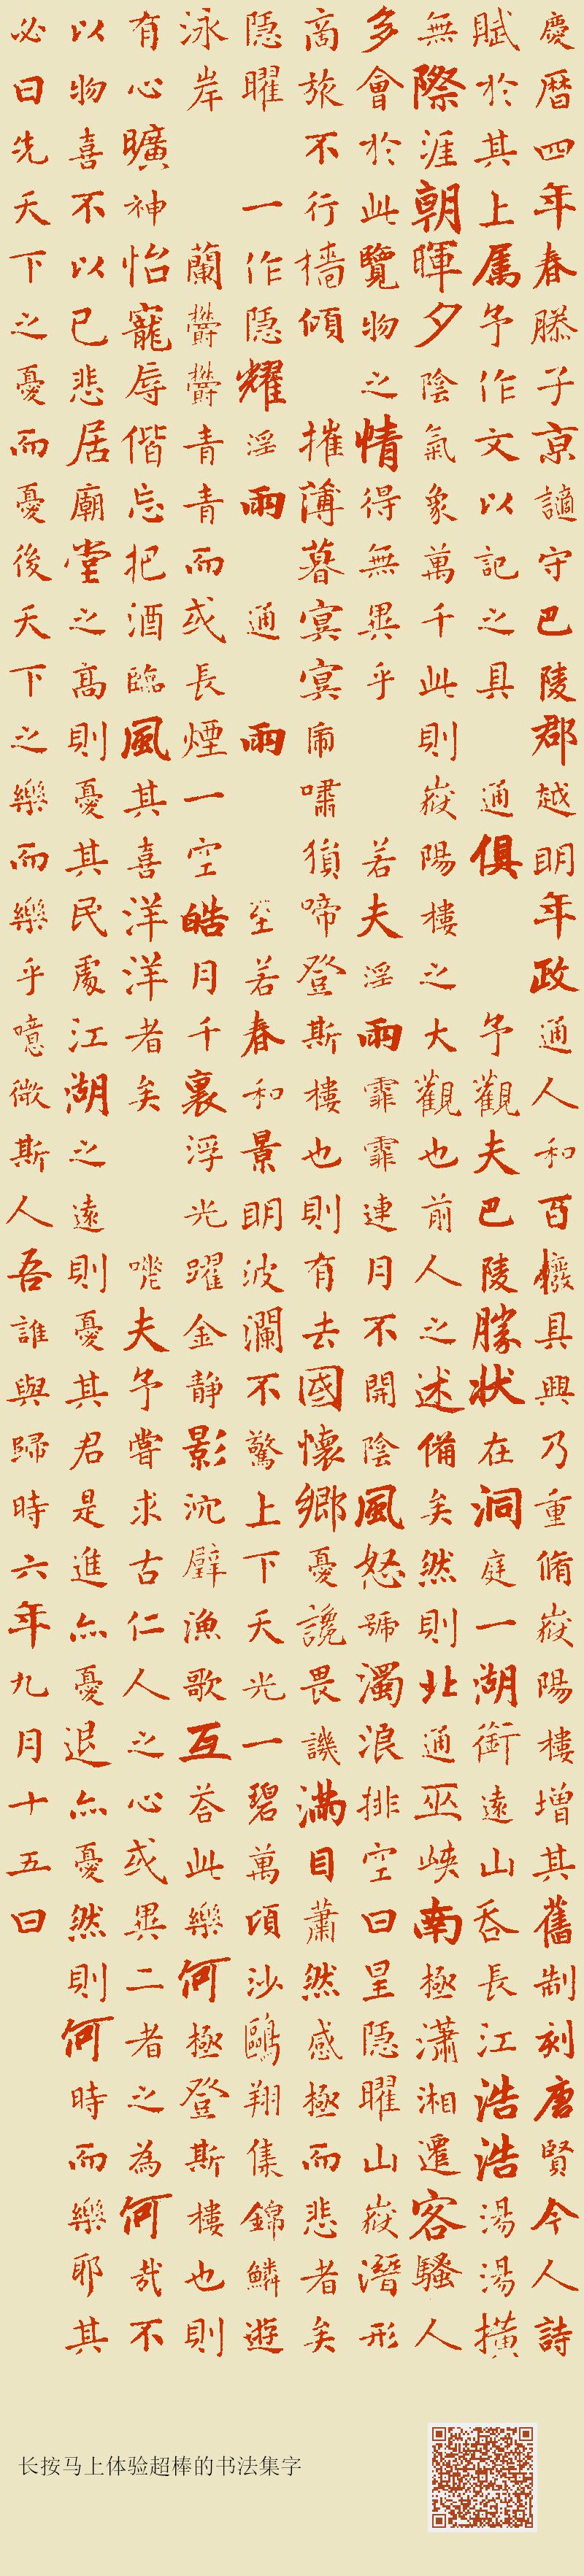 慶曆四年春滕子京謫守巴陵郡越明年政通人和百廢具興乃重脩嶽陽樓增其舊制刻唐賢今人詩
賦於其上属予作文以記之具 通俱 予觀夫巴陵勝狀在洞庭一湖銜遠山吞長江浩浩湯湯橫
無際涯朝暉夕陰氣象萬千此則嶽陽樓之大觀也前人之述備矣然則北通巫峽南極瀟湘遷客騷人
多會於此覽物之情得無異乎 若夫淫雨霏霏連月不開陰風怒號濁浪排空日星隱曜山嶽潛形
商旅不行檣傾 摧薄暮冥冥虎嘯猿啼登斯樓也則有去國懷鄉憂讒畏譏滿目蕭然感極而悲者矣
隱曜 一作隱耀淫雨 通 雨 至若春和景明波瀾不驚上下天光一碧萬頃沙鷗翔集錦鱗遊
泳岸 蘭鬱鬱青青而或長煙一空皓月千裏浮光躍金靜影沉璧漁歌互答此樂何極登斯樓也則
有心曠神怡寵辱偕忘把酒臨風其喜洋洋者矣 嗟夫予嘗求古仁人之心或異二者之為何哉不
以物喜不以己悲居廟堂之高則憂其民處江湖之遠則憂其君是進亦憂退亦憂然則何時而樂耶其
必曰先天下之憂而憂後天下之樂而樂乎噫微斯人吾誰與歸時六年九月十五日
长按马上体验超棒的书法集字